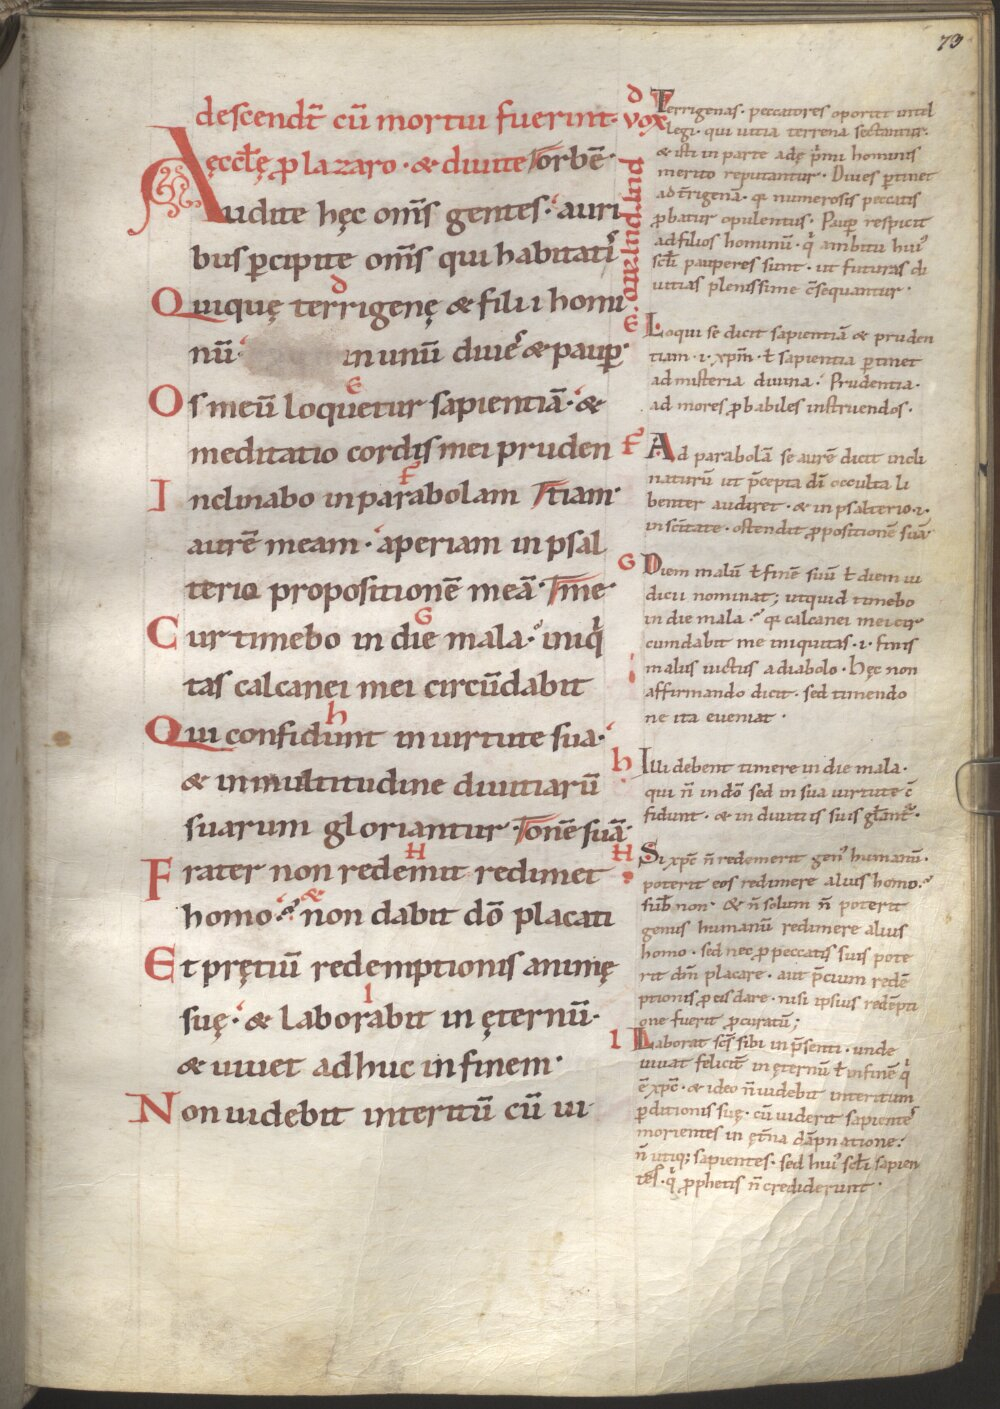 73
descendt̄ cū mortui fuerint·
ęccl̄ę p̱ lazaro· & diuite orbē·
Audite hęc om̄s gentes· auri
bus p̱cipite om̄s qui habitati
Quiquę terrigenę & filii homi
nū· in unū diues & paup̱·
Os meū loquetur sapientiā· &
meditatio cordis mei pruden
Inclinabo in parabolam tiam·
aurē meam· aperiam in psal
terio propositionē meā· me
Cur timebo in die mala· iniq
tas calcanei mei circūdabit
Qui confidunt in uirtute sua·
& in multitudine diuitiarū
suarum gloriantur· onē suā
Frater non redemit redimet
homo· non dabit dō placati
Et prętiū redemptionis animę
suę· & laborabit in ęternū·
& uiuet adhuc in finem·
Non uidebit interitū cū ui
d
vox
E
Terrigenas· peccatores oportet intel
legi· qui uitia terrena sectantur·
& isti in parte adę p̄mi hominis
merito reputantur· Diues p̱tinet
ad t̄rigenā· q numerosis peccatis
p̱batur opulentus· Paup̱ respicit
ad filios hominū· q ambitu hui
scl̄i pauperes sunt· ut futuras di
uitias plenissime c̄sequantur·
Loqui se dicit sapientiā & pruden
tiam· i· xp̄m· ł sapientia p̱tinet
ad misteria diuina· Prudentia·
ad mores p̱babiles instruendos·
F
Ad parabolā se aurē dicit incli
naturū ut p̄cepta dī occulta li
benter audiret· & in psalterio· i·
in sc̄itate· ostendit p̱positionē suā
G
Diem malū ł finē suū ł diem iu
dicii nominat; utquid timebo
in die mala· q calcanei mei cir
cumdabit me iniquitas· i· finis
malus uictus a diabolo· Hęc non
affirmando dicit· sed timendo
ne ita eueniat·
h
Illi debent timere in die mala·
qui n̄ in dō sed in sua uirtute c̄
fidunt· & in diuitiis suis gl̄ant·
H
Si xp̄c n̄ redemerit gen humanū·
poterit eos redimere alius homo·
sub non· & n̄ solum n̄ poterit
genus humanū redimere alius
homo· sed nec p̱ peccatis suis pote
rit dn̄m placare· aut p̄cium redē
ptionis p̱ eis dare· nisi ipsius redēpti
one fuerit p̱curatū;
l
Laborat scs̄ sibi in p̄senti· unde
uiuat felicit̄ in ęternū ł in finē q
ē xp̄c· & ideo n̄ uidebit interitum
p̱ditionis suę· cū uiderit sapientes
morientes in ęt̄na dāpnatione·
n̄ utiq; sapientes· sed hui scl̄i sapien
tes· q p̱phetis n̄ crediderunt·